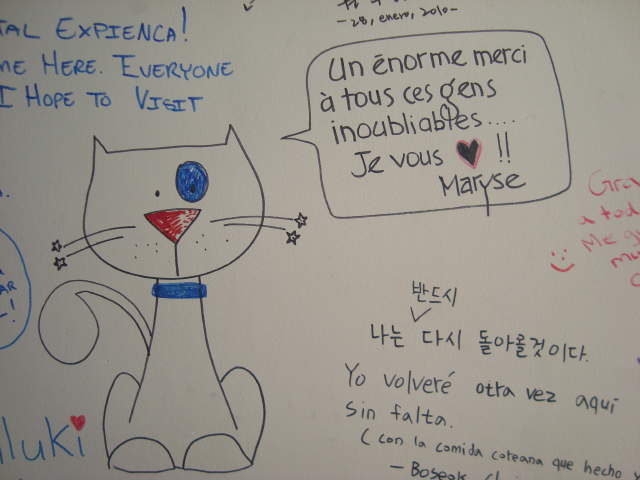 TAL EXPIENCA!
ME HERE. EVERYONE
I HOPE TO VISIT
-28, enero, 2010-
Un énorme merci
à tous ces gens
inoubliables....
Je vous ♥ !!
Maryse
Gra
a tod
Me g
mu
AR
L!
반드시
나는 다시 돌아올것이다.
Yo volveré otra vez aquí
sin falta.
( con la comida coteana que hecho y
- Boseok
luki